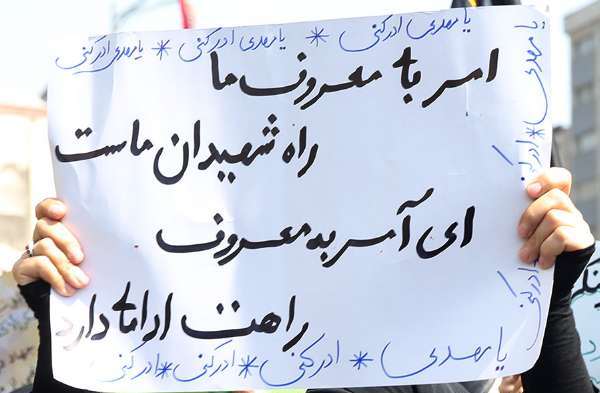 یا مهدی ادرکنی * یا مهدی ادرکنی * یا مهدی ادرکنی
امر با معروف ما
راه شهیدان ماست
ای آمر به معروف
راهت ادامه دارد
یا مهدی ادرکنی * ادرکنی
ادرکنی
یا مهدی * ادرکنی * ادرکنی * ادرکنی